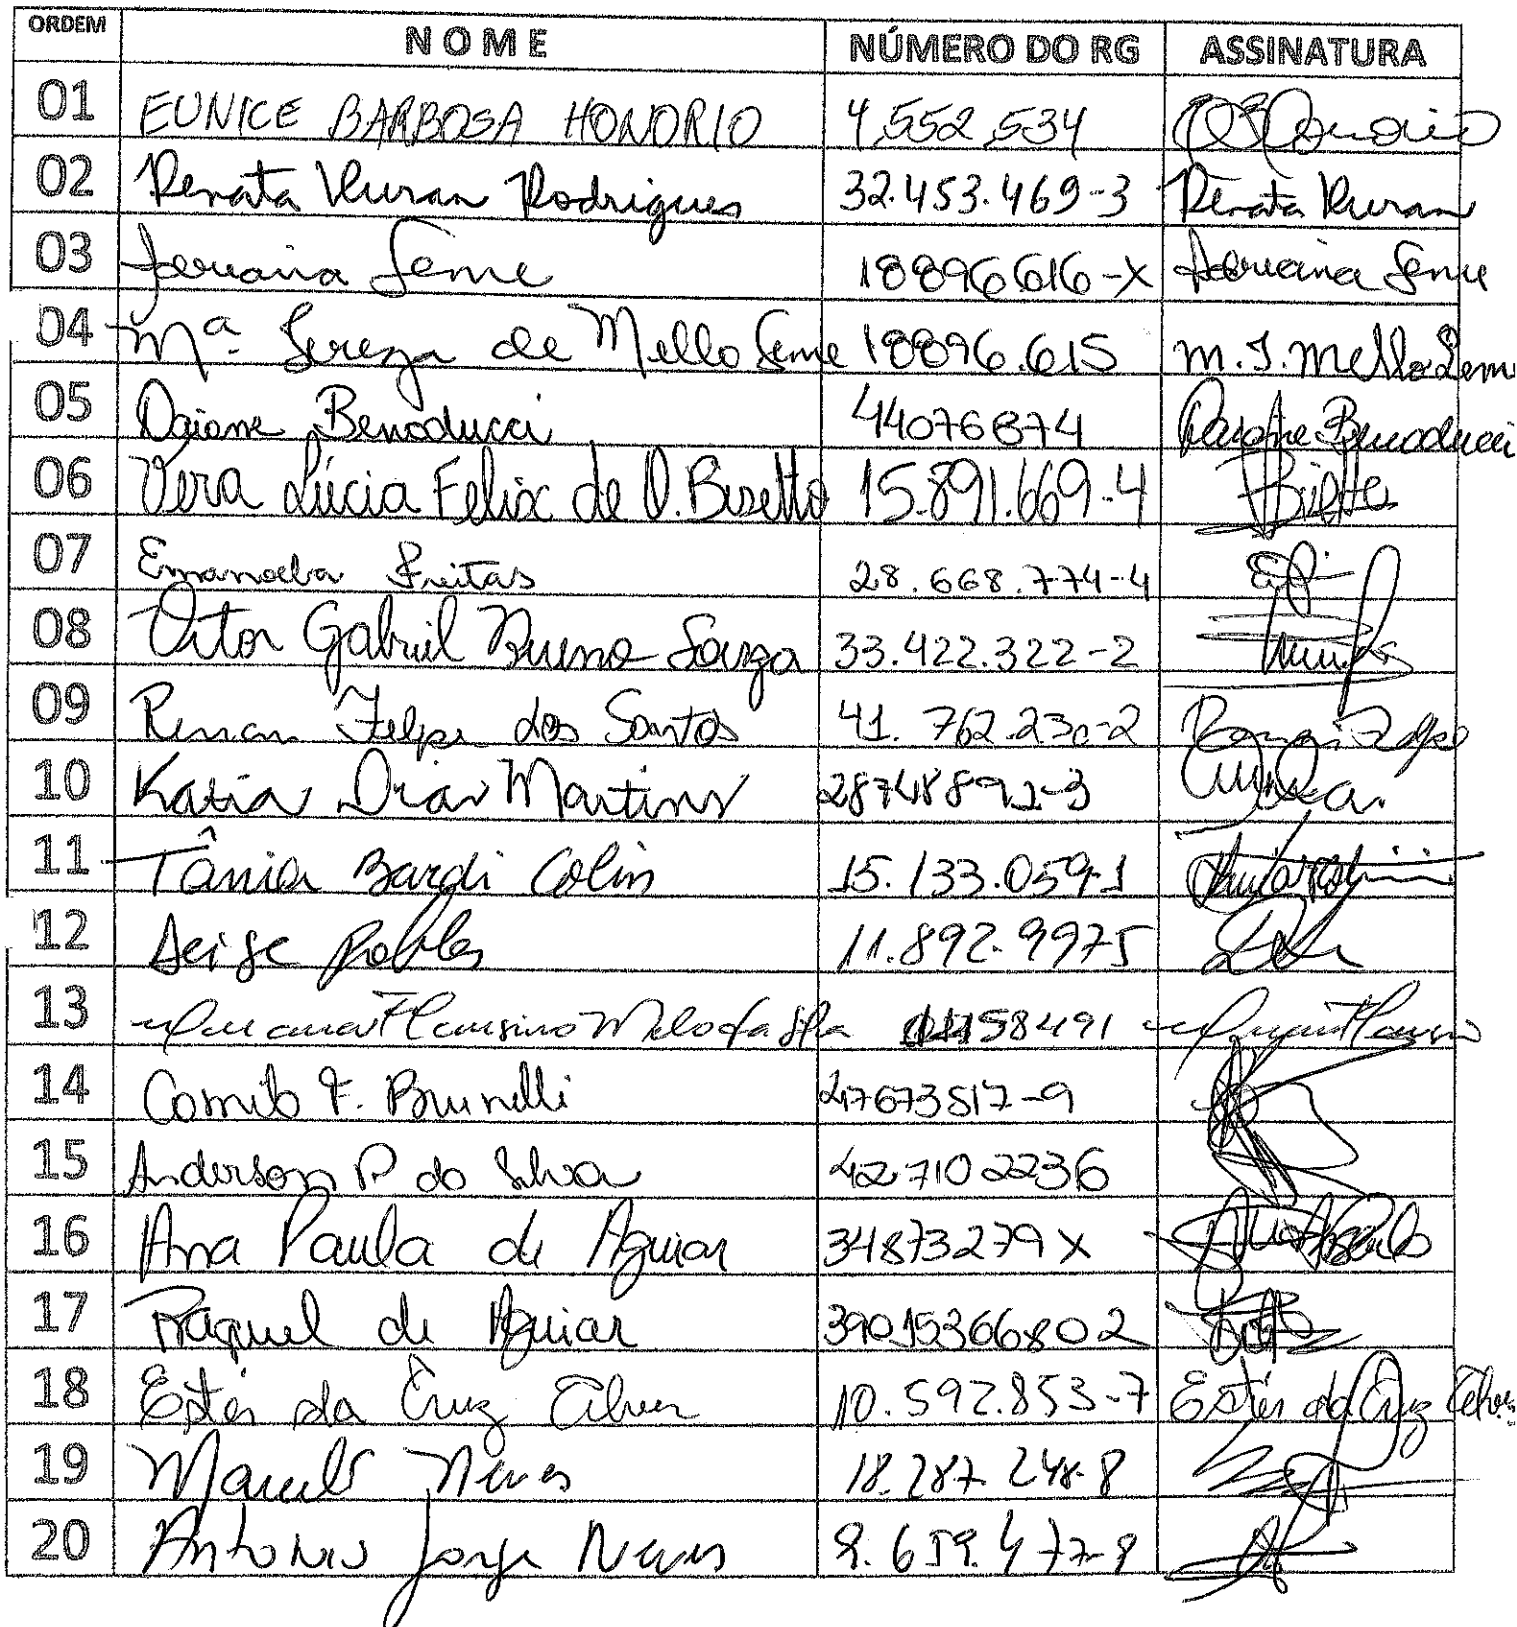 ORDEM NOME NÚMERO DO RG ASSINATURA
01 EUNICE BARBOSA HONORIO 4.552.534
02 Renata Duran Rodrigues 32.453.469-3 Renata Duran
03 Leme 18896616-X Leme
04 Mª Tereza de Mello Leme 18896.615 M.T. Mello Leme
05 Daiane Benoducci 44076874 Daiane Benoducci
06 Vera Lúcia Felix de O. Bisetto 15.891.669-4
07 Emanoela Freitas 28.668.774-4
08 Vitor Gabriel Bueno Souza 33.422.322-2
09 Renan Felipe dos Santos 41.762.230-2
10 Katia Dias Martins 28748892-3
11 Tânia Bardi Colin 15.133.059-1
12 Deise Robles 11.892.9975
13 Melo da Silva
14 Camila F. Brunelli 27673517-9
15 Anderson P da Silva 42.710 2236
16 Ana Paula de Aguiar 34873279X
17 Raquel de Aguiar 390.15366802
18 Ester da Cruz Alves 10.592.853-7 Ester da Cruz Alves
19 Marcelo Neves 18.287.248-8
20 Antonio Jorge Neves